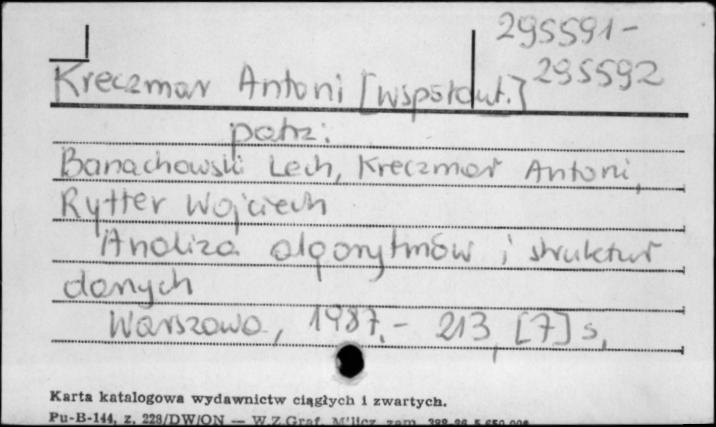 295591-
Kreczmar Antoni [współaut.] 295592
patrz:
Banachowski Lech, Kreczmar Antoni,
Rytter Wojciech
Analiza algorytmów i struktur
danych
Warszawa, 1987.- 213, [7] s.
Karta katalogowa wydawnictw ciągłych i zwartych.
Pu-B-144, z. 228/DW/ON — W.Z.Graf. zam.